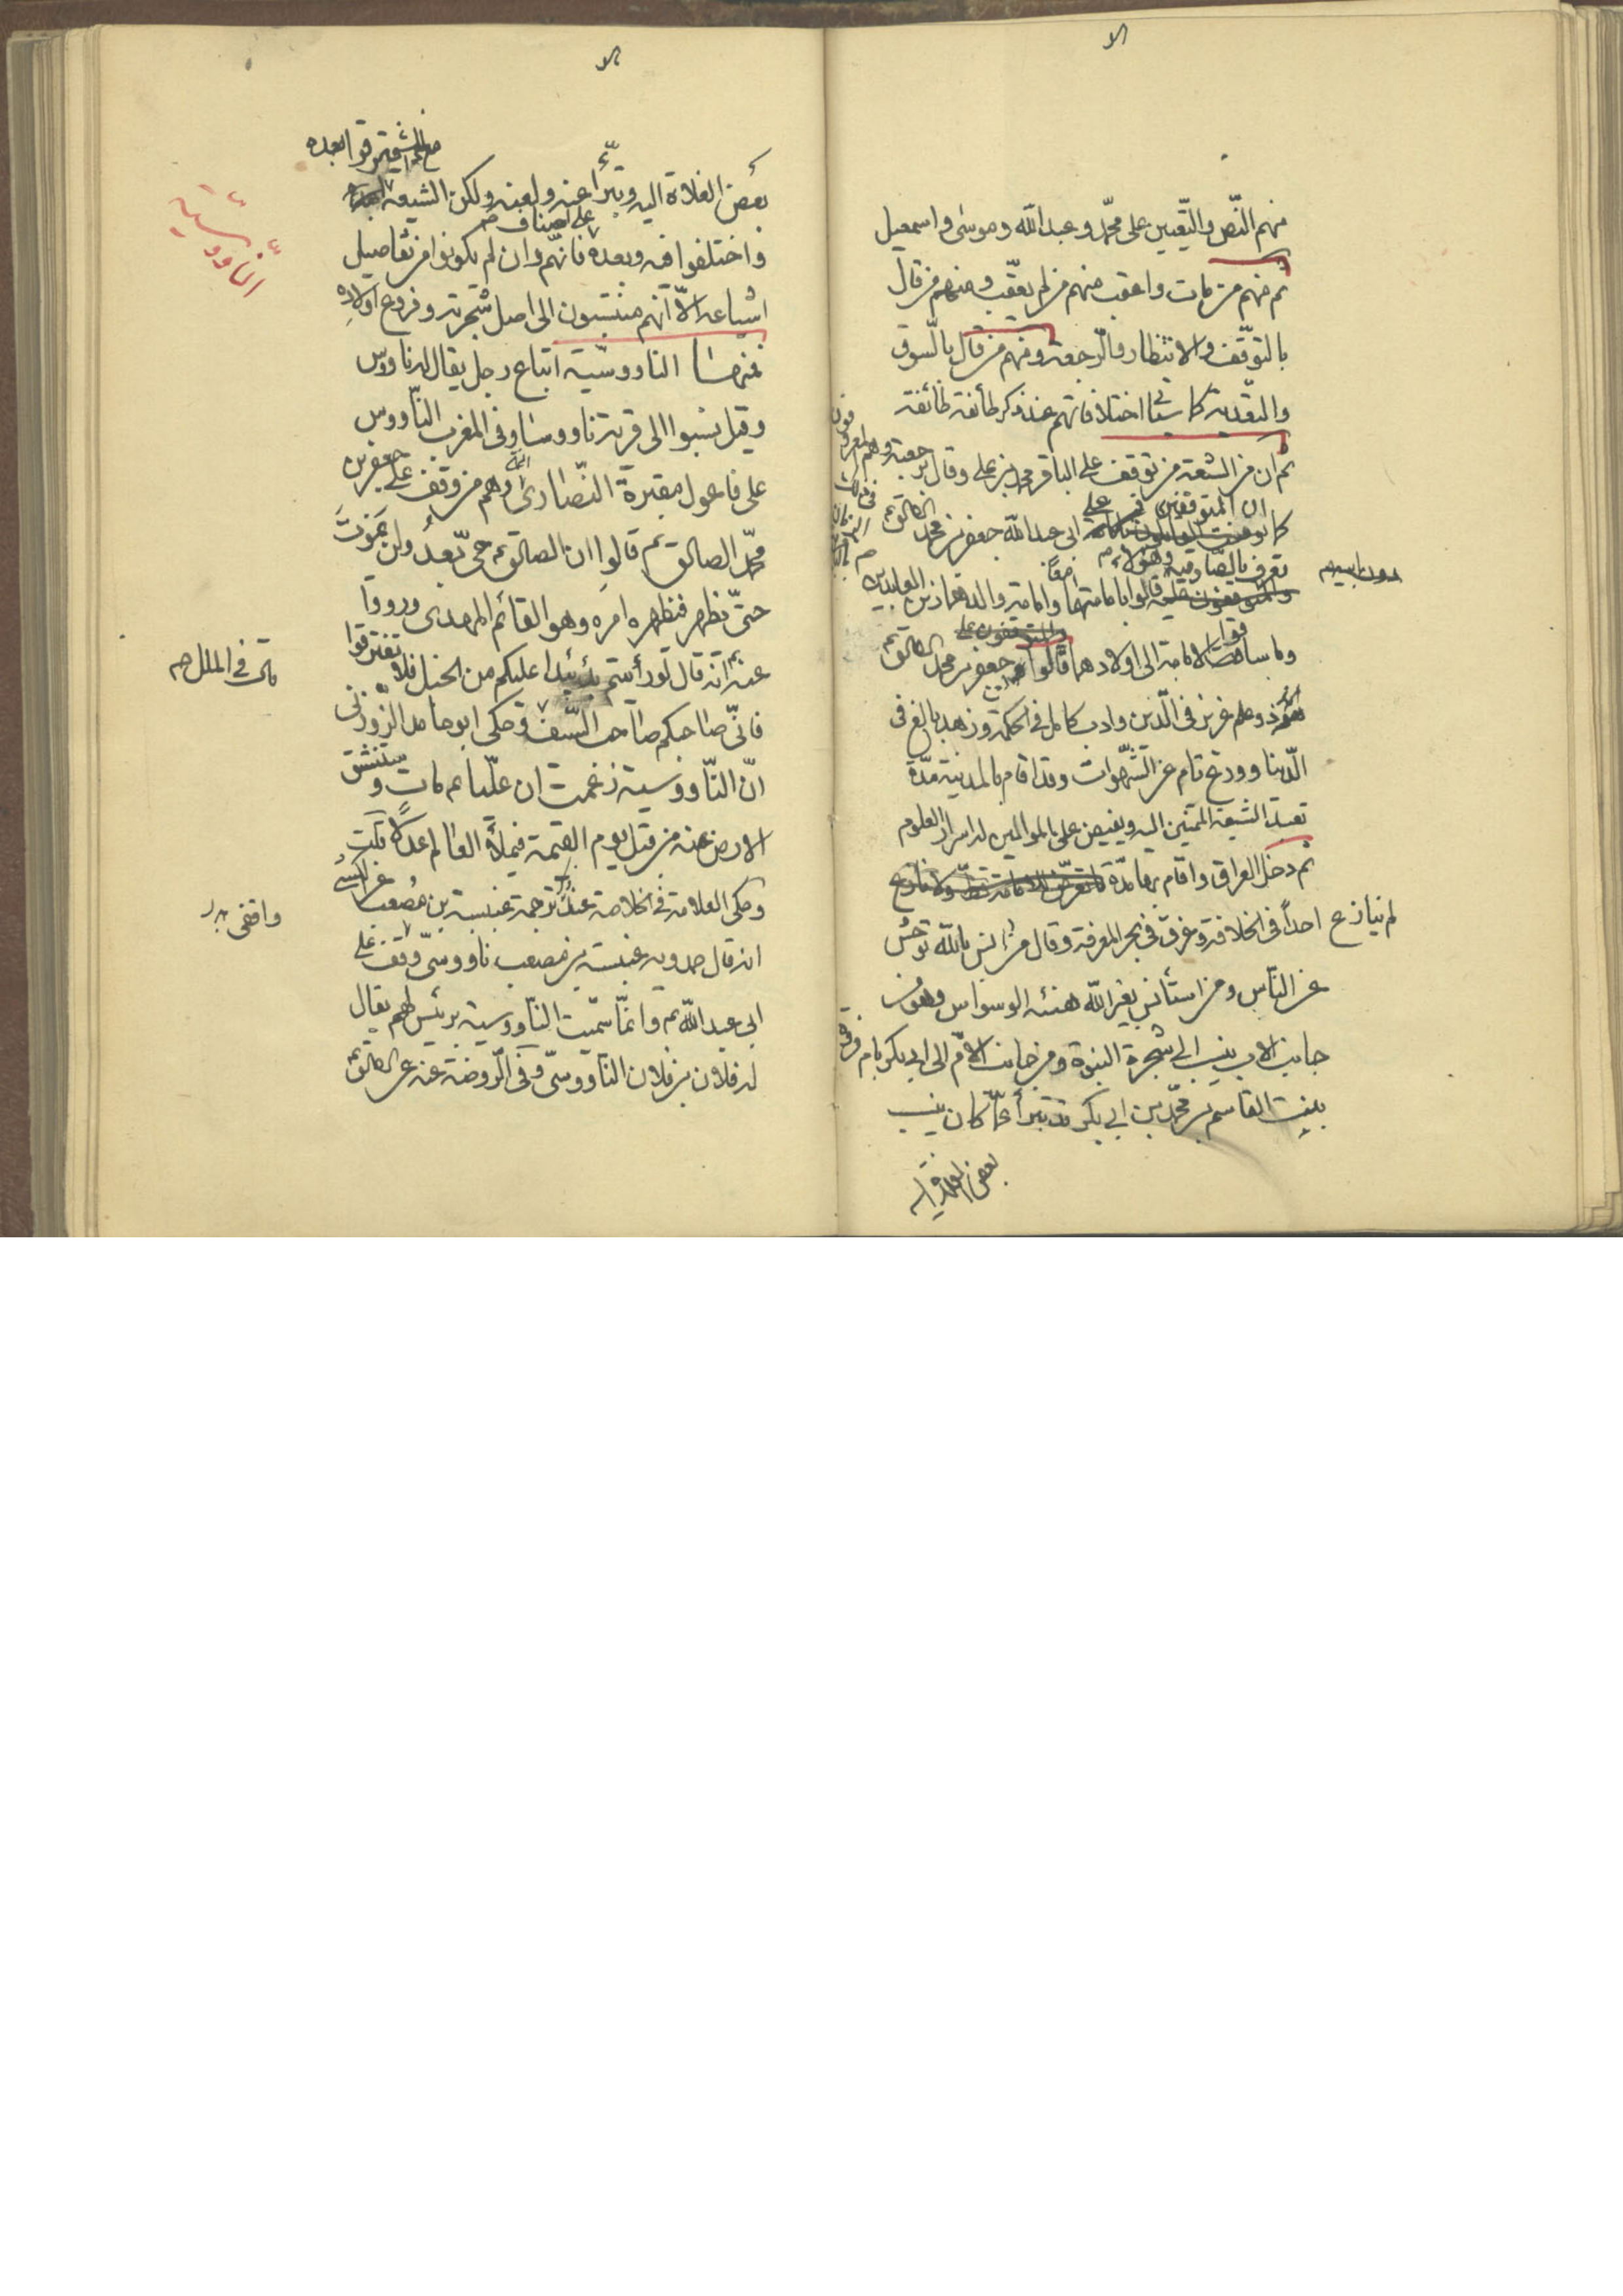 منهم النّص والتّعيين على محمّد وعبد الله وموسى واسمعيل
ثم منهم من مات واعقب منهم من لم يعقّب ومنهم من قال
بالتوقّف والانتظار والرّجعة ومنهم من قال بالسّوق
والتعّدية كما سيأتى اختلافاتهم عند ذكر طائفة طائفة
ثم ان من الشيعة من توقف على الباقر محمد بن على وقال برجعته وهم المعروفون
كما ان المتوقفين على ابى عبد الله جعفر بن محمد الصادق ع
تعرف بالصّادقية وهؤلاء قالوا بامامتهما وامامة والدهما زين العابدين
وما ساقوا الامامة الى اولادهما قالوا جعفر بن محمد الصادق ع
ذو علم غزير فى الدّين وادب كامل فى الحكمة وزهد بالغ فى
الدّنيا وورع تام عن الشّهوات وقد اقام بالمدينة مدّة
تفيد الشيعة المنتمين اليه ويفيض على الموالين له اسرار العلوم
ثم دخل العراق واقام بها مدّة
لم ينازع احداً فى الخلافة وغرق فى بحر المعرفة وقال من انس بالله توحّش
عن النّاس ومن استأنس بغير الله هنئه الوسواس وهو من
جانب الاب ينسب الى شجرة النبوة ومن جانب الامّ الى ابى بكر بام فروة
ببنت القاسم بن محمّد بن ابى بكر قد تبرأ عمّا كان ينسب
بعض الغلاة اليه
بعض الغلاة اليه وتبرّأ عنه ولعنه ولكن الشيعة افترقوا بعده
على اصناف
واختلفوا فيه وبعده فانّهم وان لم يكونوا من تفاصيل
اشياعه الّا انّهم منتسبون الى اصل شجرته وفروع اولاده
فمنهم الناووسّية اتباع رجل يقال له ناووس
وقيل نسبوا الى قرية ناووسا وفى المغرب النّاووس
على فاعول مقبرة النّصارى وهم من وقف على جعفر بن
محمّد الصادق ع قالوا ان الصادق ع حىّ بعدُ ولن يموتَ
حتّى يظهر فيظهره امره وهو القائم المهدى ورووا
عنه ع انّه قال لو رأيتم عليكم من الجبل فلا
فانّى صاحبكم صاحب السّيف وحكى ابو حامد الزّوزنى
انّ النّاووسية زعمت ان عليّا ع مات وستنشق
الارض عنه من قبل يوم القيمة فيملأ العالم عدلاً قلت
وحكى العلامة فى الخلاصة عند ترجمة عنبسة بن مُصعب عن الكشى
انه قال حمدويه عنبسة بن مصعب ناووسىّ وقف على
ابى عبد الله ع وانّما سمّيت النّاووسية برئيس لهم يقال
له فلان بن فلان النّاووسىّ وفى الرّوضة عنه عن الصادق ع
النّاووسّية
قال فى الملل
واقفى